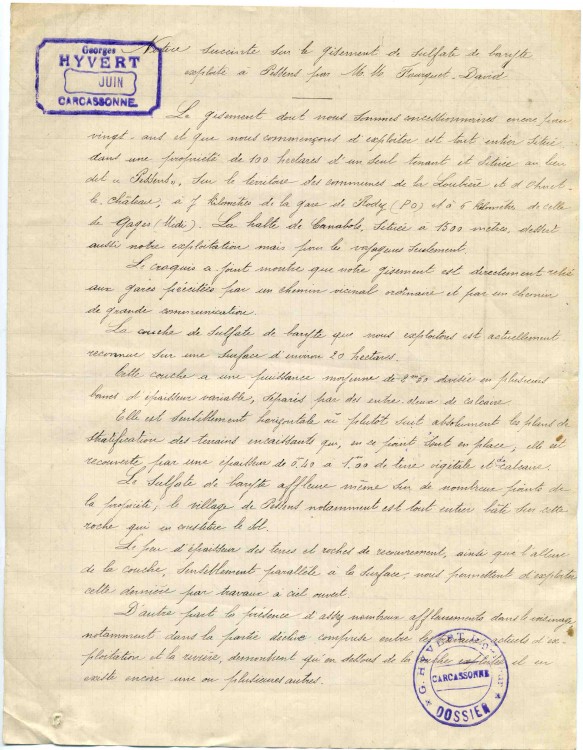 Georges
HYVERT
JUIN
CARCASSONNE
Notice succincte sur le gisement de sulfate de baryte
exploité à Pessens par M.M. Fourguet-David
Le gisement dont nous sommes concessionnaires encore pour
vingt-ans et que nous commençons d'exploiter est tout entier situé
dans une propriété de 100 hectares d'un seul tenant et située au lieu
dit "Pessens", sur le territoire des communes de la Loubière et d'
le-château, à 7 kilomètres de la gare de Rodez (PO) et à 6 kilomètres de celle
de Gages (Midi). La halte de Canabols, située à 1500 mètres, dessert
aussi notre exploitation mais pour les voyageurs seulement.
Le croquis ci joint montre que notre gisement est directement relié
aux gares précitées par un chemin vicinal ordinaire et par un chemin
de grande communication.
La couche de sulfate de baryte que nous exploitons est actuellement
reconnue sur une surface d'environ 20 hectares.
Cette couche a une puissance moyenne de 2m50 divisée en plusieurs
bancs d'épaisseur variable, séparés par des entre-deux de calcaire.
Elle est sensiblement horizontale ou plutôt suit absolument les plans de
stratification des terrains encaissants qui, en ce point sont en place; elle est
recouverte par une épaisseur de 0,40 à 1m00 de terre végétale et de calcaire.
Le sulfate de baryte affleure même sur de nombreux points de
la propriété; le village de Pessens notamment est tout entier bâti sur cette
roche qui en constitue le sol.
Le peu d'épaisseur des terres et roches de recouvrement, ainsi que l'allure
de la couche, sensiblement parallèle à la surface, nous permettent d'exploiter
cette dernière par travaux à ciel ouvert.
D'autre part la présence d'assez nombreux affleurements dans le voisinage
notamment dans la partie déclive comprise entre les actuels d'ex-
ploitation et la rivière, démontrent qu'en dessous de la couche exploitée il en
existe encore une ou plusieurs autres.
G. HYVERT
CARCASSONNE
DOSSIER